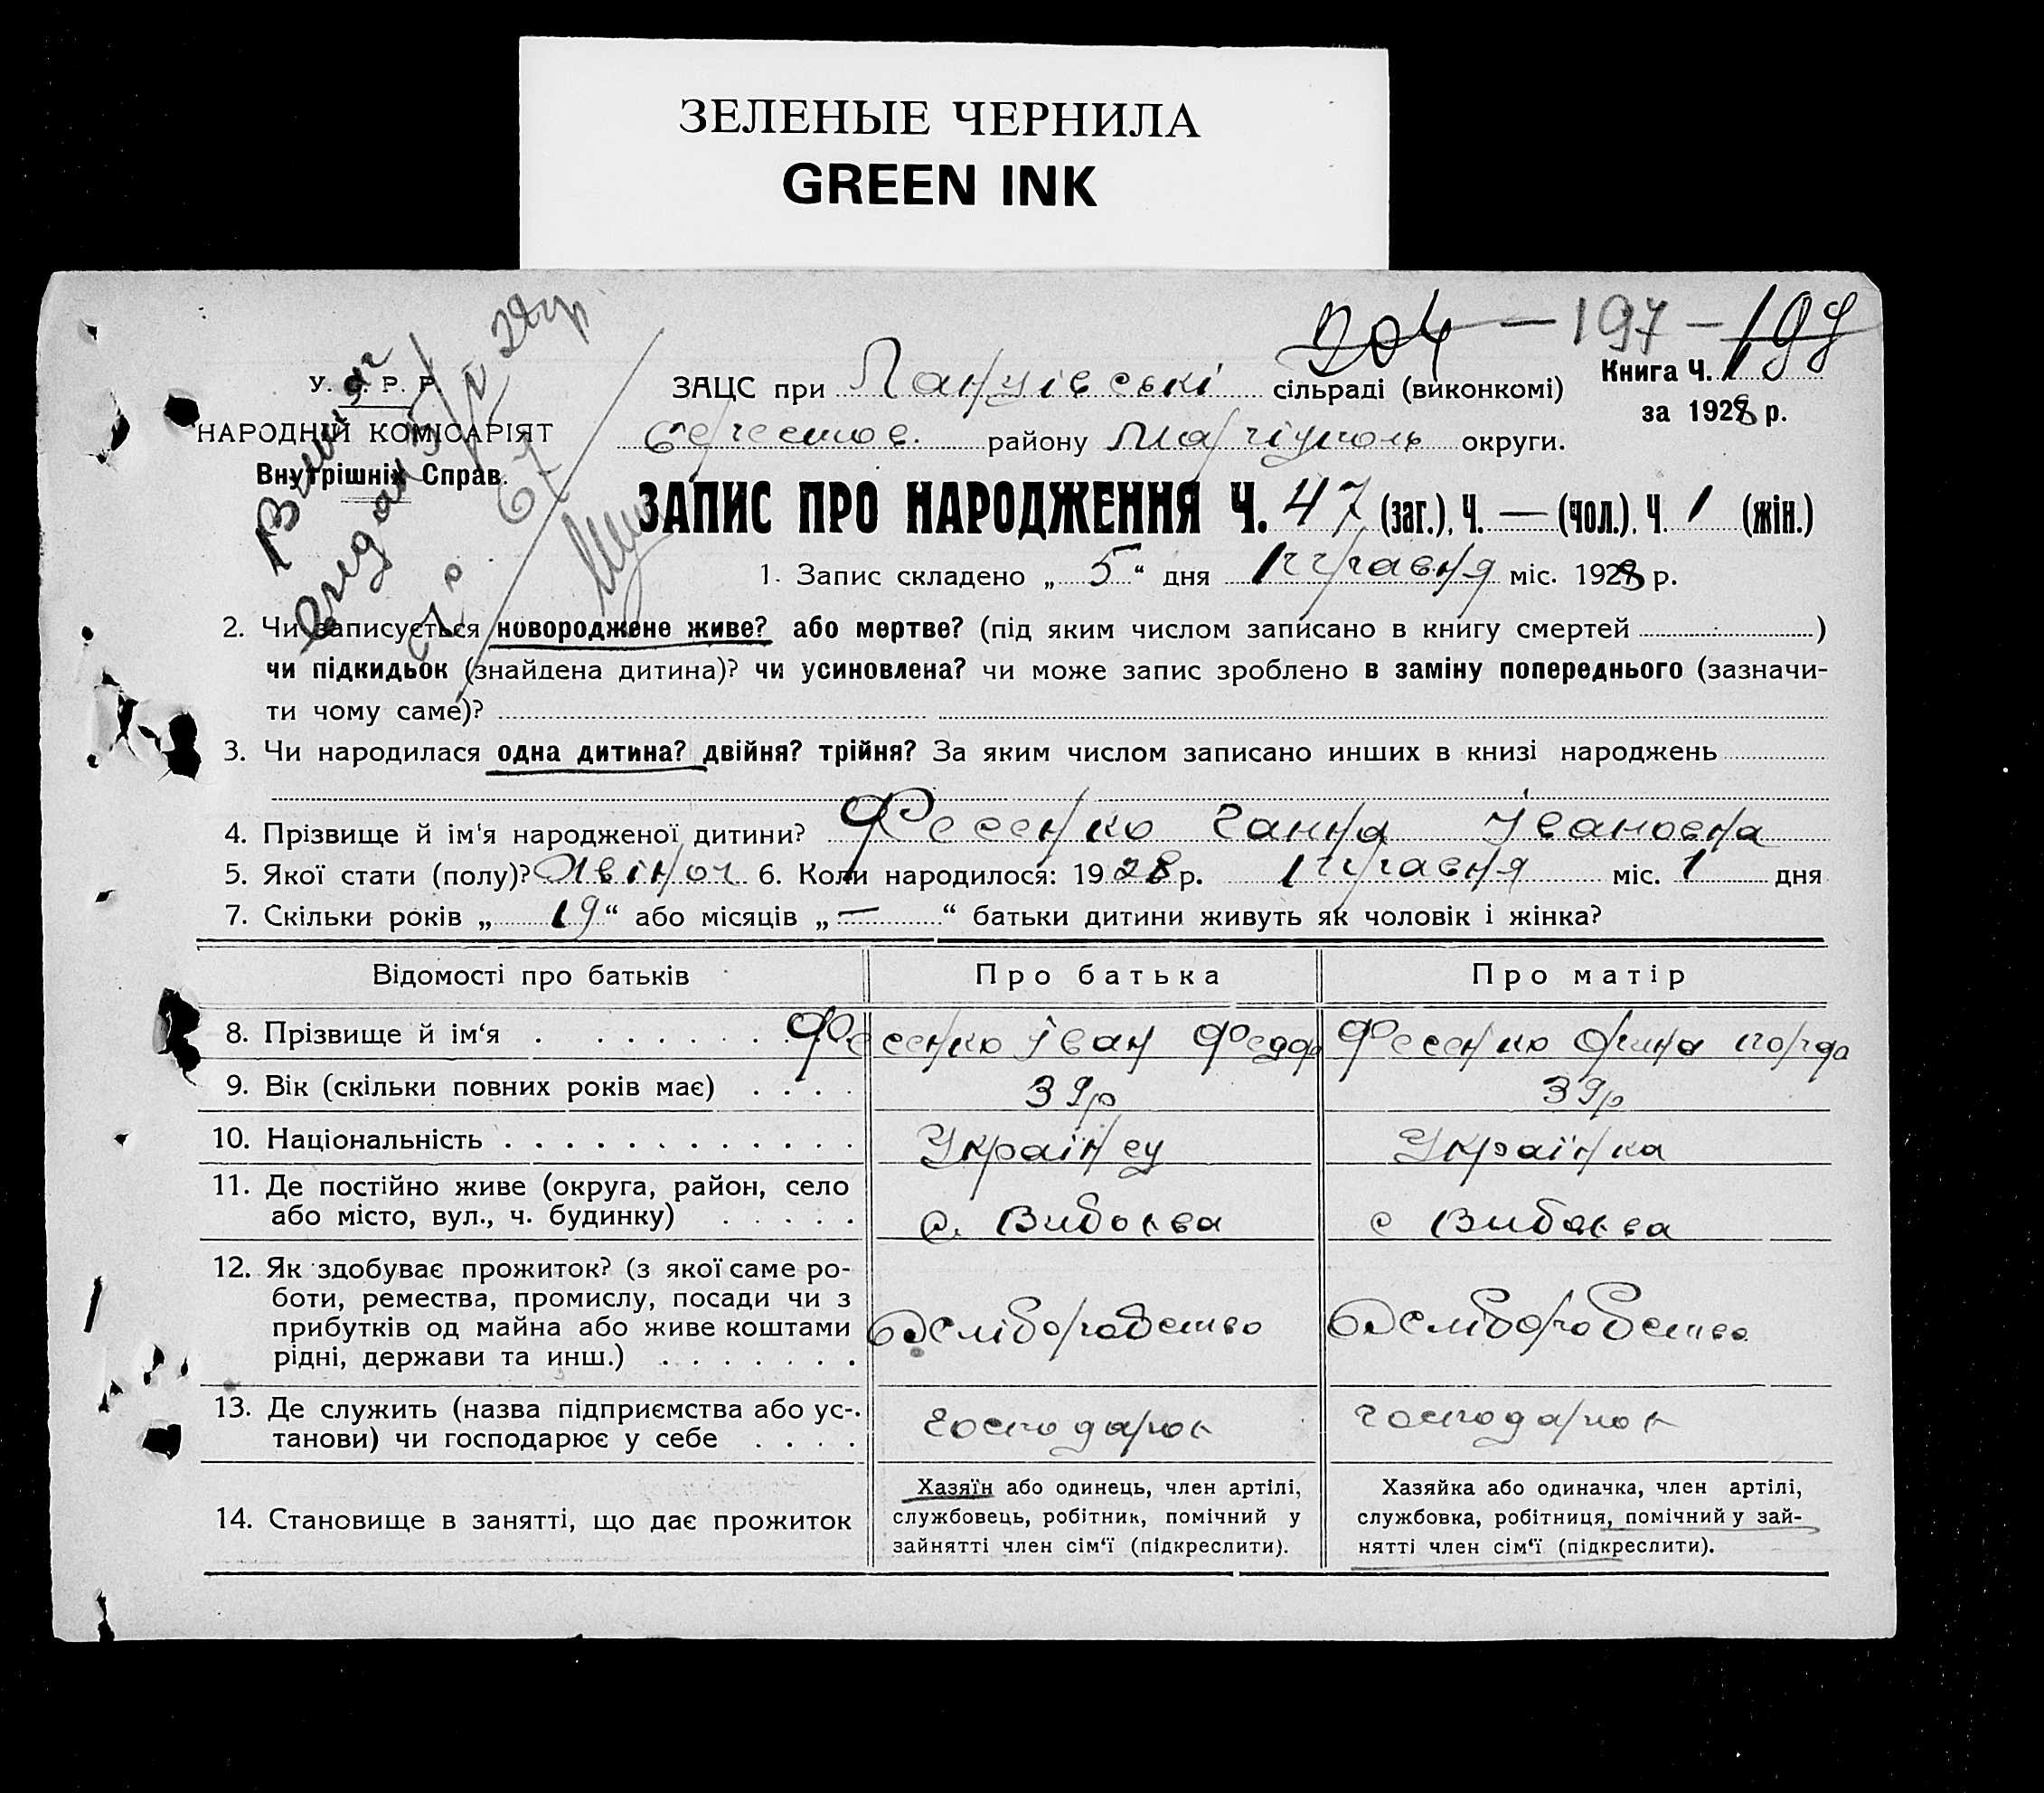 ЗЕЛЕНЫЕ ЧЕРНИЛА
GREEN INK
204 — 197 — 198
У. С. Р. Р.
ЗАЦС при сільраді (виконкомі)
Книга Ч. 1
за 1928 р.
НАРОДНІЙ КОМІСАРІЯТ
району округи.
Внутрішніх Справ.
ЗАПИС ПРО НАРОДЖЕННЯ Ч. 47 (заг.), Ч. — (чол.), Ч. 1 (жін.)
1. Запис складено „ 5 “ дня травня міс. 1928 р.
2. Чи записується новороджене живе? або мертве? (під яким числом записано в книгу смертей )
чи підкидьок (знайдена дитина)? чи усиновлена? чи може запис зроблено в заміну попереднього (зазначи-
ти чому саме)?
3. Чи народилася одна дитина? двійня? трійня? За яким числом записано инших в книзі народжень
4. Прізвище й ім'я народженої дитини? Фесенко Ганна Івановна
5. Якої стати (полу)? 6. Коли народилося: 1928 р. травня міс. 1 дня
7. Скільки років „ 19 “ або місяців „ — “ батьки дитини живуть як чоловік і жінка?
Відомості про батьків Про батька Про матір
8. Прізвище й ім‘я Фесенко Іван Федор Фесенко
9. Вік (скільки повних років має) 39р 39р
10. Національність Українец Українка
11. Де постійно живе (округа, район, село
або місто, вул., ч. будинку) с. с
12. Як здобуває прожиток? (з якої саме ро-
боти, ремества, промислу, посади чи з
прибутків од майна або живе коштами
рідні, держави та инш.) хліборобство хліборобство
13. Де служить (назва підприємства або ус-
танови) чи господарює у себе
14. Становище в занятті, що дає прожиток
Хазяїн або одинець, член артілі,
службовець, робітник, помічний у
зайнятті член сім‘ї (підкреслити).
Хазяйка або одиначка, член артілі,
службовка, робітниця, помічний у зай-
нятті член сім‘ї (підкреслити).